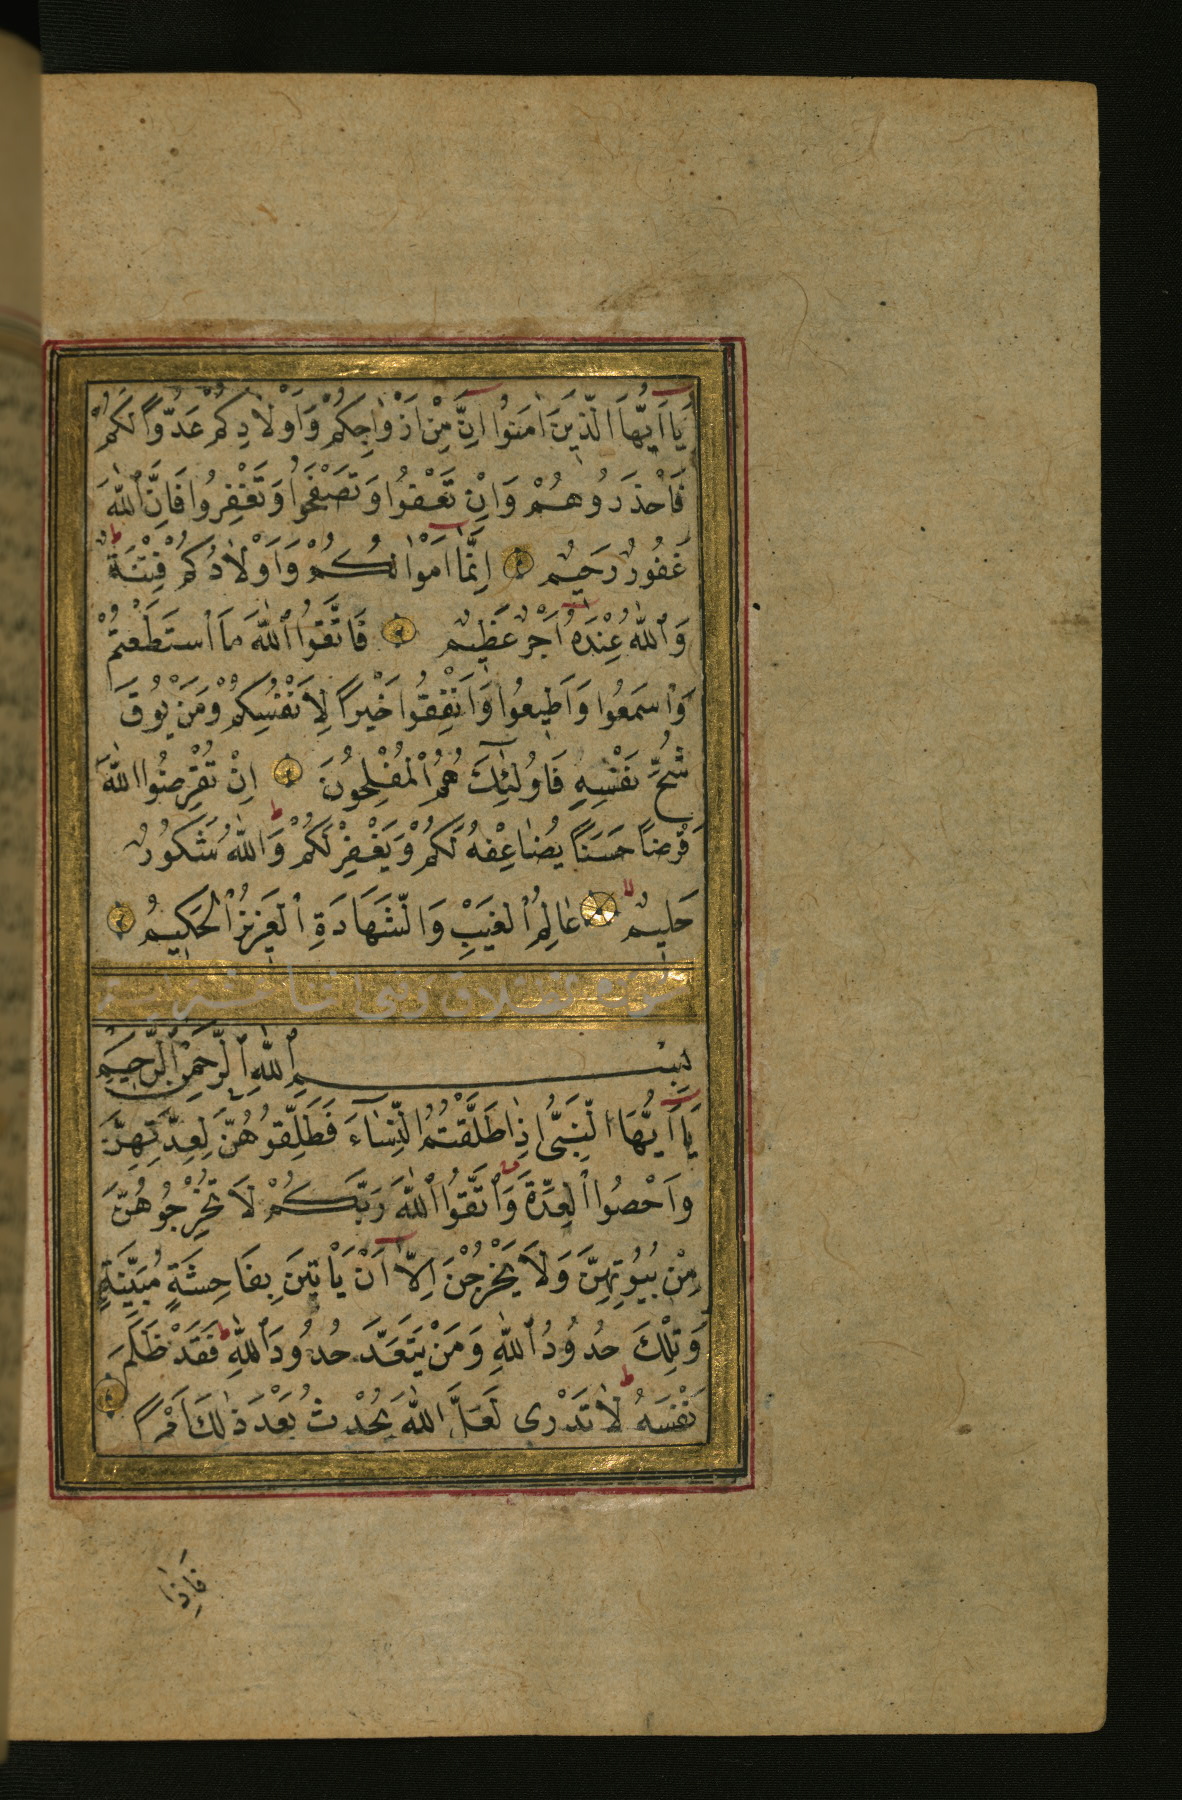 يَا أَيُّهَا الَّذِينَ اٰمَنُوا اِنَّ مِنْ اَزْوَاجِكُمْ وَاَوْلَادِكُمْ عَدُوًّا لَكُمْ
فَاحْذَرُوهُمْ وَاِنْ تَعْفُوا وَتَصْفَحُوا وَتَغْفِرُوا فَاِنَّ اللّٰهَ
غَفُورٌ رَحِيمٌ اِنَّمَا اَمْوَالُكُمْ وَاَوْلَادُكُمْ فِتْنَةٌ ط
وَاللّٰهُ عِنْدَهُ اَجْرٌ عَظِيمٌ فَاتَّقُوا اللّٰهَ مَا اسْتَطَعْتُمْ
وَاسْمَعُوا وَاَطِيعُوا وَاَنْفِقُوا خَيْرًا لِاَنْفُسِكُمْ وَمَنْ يُوقَ
شُحَّ نَفْسِهِ فَاُولٰئِكَ هُمُ الْمُفْلِحُونَ اِنْ تُقْرِضُوا اللّٰهَ
قَرْضًا حَسَنًا يُضَاعِفْهُ لَكُمْ وَيَغْفِرْ لَكُمْ ط وَاللّٰهُ شَكُورٌ
حَلِيمٌ لا عَالِمُ الْغَيْبِ وَالشَّهَادَةِ الْعَزِيزُ الْحَكِيمُ
سورة الطلاق وهي اثنا عشرة اية
بِسْمِ اللّٰهِ الرَّحْمٰنِ الرَّحِيمِ
يَا أَيُّهَا النَّبِيُّ اِذَا طَلَّقْتُمُ النِّسَاءَ فَطَلِّقُوهُنَّ لِعِدَّتِهِنَّ
وَاَحْصُوا الْعِدَّةَ وَاتَّقُوا اللّٰهَ رَبَّكُمْ لَا تُخْرِجُوهُنَّ
مِنْ بُيُوتِهِنَّ وَلَا يَخْرُجْنَ اِلَّا اَنْ يَأْتِينَ بِفَاحِشَةٍ مُبَيِّنَةٍ
وَتِلْكَ حُدُودُ اللّٰهِ وَمَنْ يَتَعَدَّ حُدُودَ اللّٰهِ فَقَدْ ظَلَمَ
نَفْسَهُ ط لَا تَدْرِى لَعَلَّ اللّٰهَ يُحْدِثُ بَعْدَ ذٰلِكَ اَمْرًا
فَاِذَا